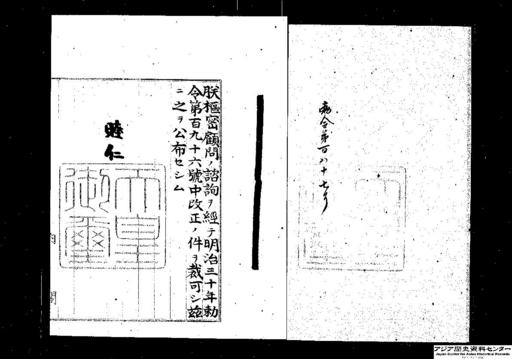 勅令第百八十七号
朕樞密顧問ノ諮詢ヲ經テ明治三十年勅
令第百九十六號中改正ノ件ヲ裁可シ茲
ニ之ヲ公布セシム
睦仁
天皇
御璽
内閣
アジア歴史資料センター
Japan Center for Asian Historical Records